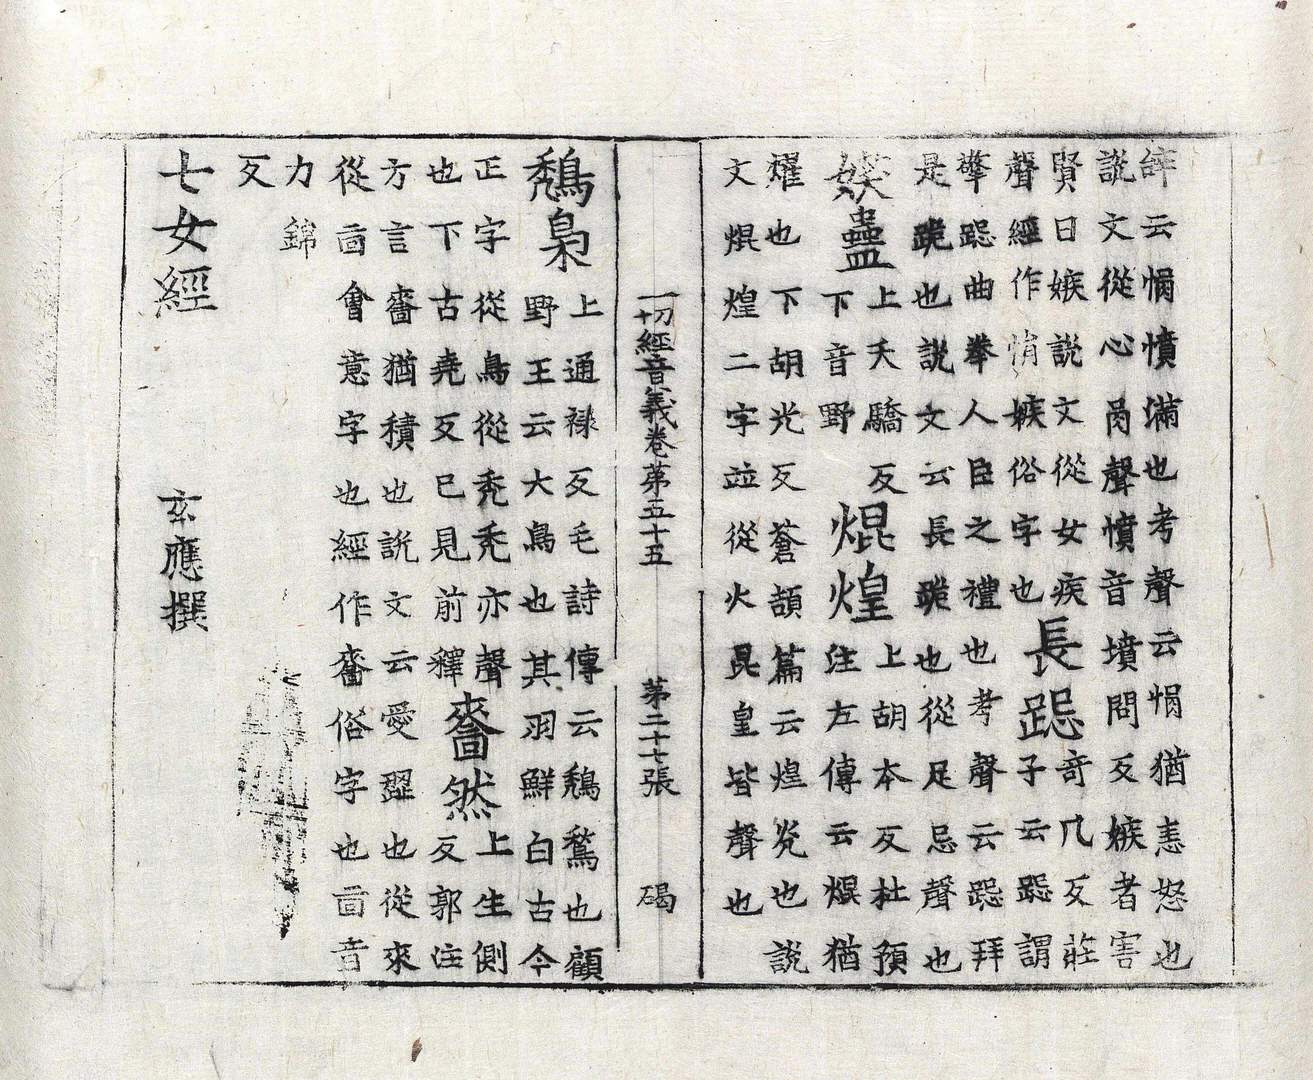 辝云悁憤滿也考聲云悁猶恚怒也
説文從心肙聲憤音墳問反嫉者害
賢曰嫉説文從女疾
聲經作悄嫉俗字也
長跽
奇几反莊
子云跽謂
擎跽曲拳人臣之禮也考聲云跽拜
是跪也説文云長跪也從足忌聲也
妖蠱
上夭驕反
下音野
焜煌
上胡本反杜預
注左傳云焜猶
燿也下胡光反蒼頡篇云煌炗也説
文焜煌二字竝從火昆皇皆聲也
一切經音義卷第五十五 第二十七張 碣
鵚梟
上通祿反毛詩傳云鵚鶖也顧
野王云大鳥也其羽鮮白古今
正字從鳥從秃秃亦聲
也下古堯反已見前釋
嗇然
上生側
反郭注
方言嗇猶積也説文云愛歰也從來
從㐭會意字也經作嗇俗字也㐭音
力錦
反
七女經 玄應撰